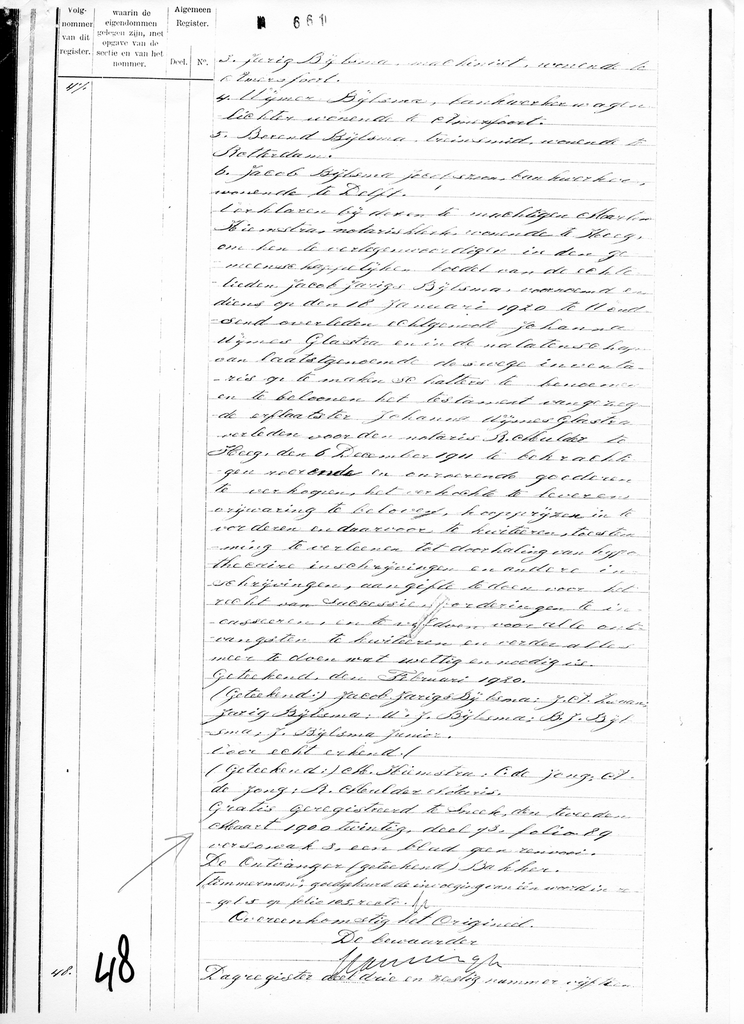 Volg-
nommer
van dit
register.
waarin de
eigendommen
gelegen zijn, met
opgave van de
sectie en van het
nommer.
Algemeen
Register.
Deel. No.
661
3. Jarig Bijlsma, machinist, wonende te
Amersfoort.
47.
4. Wijmer Bijlsma, bankwerker wagen
lichter wonende te Amersfoort.
5. Berend Bijlsma, treinsmid, wonende te
Rotterdam.
6. Jacob Bijlsma Jacobszoon, bankwerker,
wonende te Delft.
Verklaren bij dezen te machtigen Maarten
Hiemstra, notarisklerk, wonende te Heeg,
om hen te vertegenwoordigen in den ge
meenschappelijken boedel van de echte
lieden Jacob Jarigs Bijlsma, voornoemd en
diens op den 18 Januari 1920 te Woud
send overleden echtgenoote Johanna
Wijmes Glastra en in de nalatenschap
van laatstgenoemde deswege inventa-
ris op te maken schatters te benoemen
en te beloonen het testament van gezeg
de erflaatster Johanna Wijmes Glastra
verleden voor den notaris R. Mulder te
Heeg, den 6 December 1911 te bekrachti
gen roerende en onroerende goederen
te verkoopen, het verkochte te leveren
vrijwaring te beloven, koopprijzen in te
vorderen en daarvoor te kwiteeren, toestem
ming te verleenen tot doorhaling van hypo
thecaire inschrijvingen en andere in-
schrijvingen, aangifte te doen voor het
recht van successie vorderingen te in-
casseeren, en te voldoen, voor alle ont
vangsten te kwiteeren en verder alles
meer te doen wat wettig en noodig is.
Geteekend, den Februari 1920.
(Geteekend:) Jacob Jarigs Bijlsma; J. A. Zwaan;
Jarig Bijlsma; W. J. Bijlsma; B. J. Bijl
sma; J. Bijlsma Junior.
Voor echt erkend:
(Geteekend:) M. Hiemstra; C. de Jong; A.
de Jong; R. Mulder Notaris.
Gratis geregistreerd te Sneek, den tweeden
Maart 1900 twintig, deel 73 folio 89
verso vak 3, een blad geen renvooi.
De Ontvanger (geteekend) Bakker.
Timmerman; goedgekeurd de invoeging van één woord in re-
gel 5 op folio 105 recto.
Overeenkomstig het Origineel.
De bewaarder
48.
48
Dagregister deel drie en zestig nummer vijftien